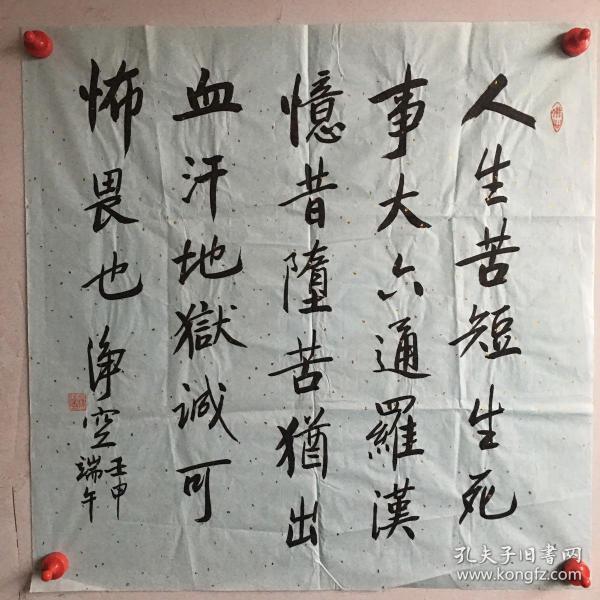 人生苦短生死
事大六通羅漢
憶昔墮苦猶出
血汗地獄誠可
怖畏也 淨空
壬申
端午
孔夫子旧书网
www.kongfz.com